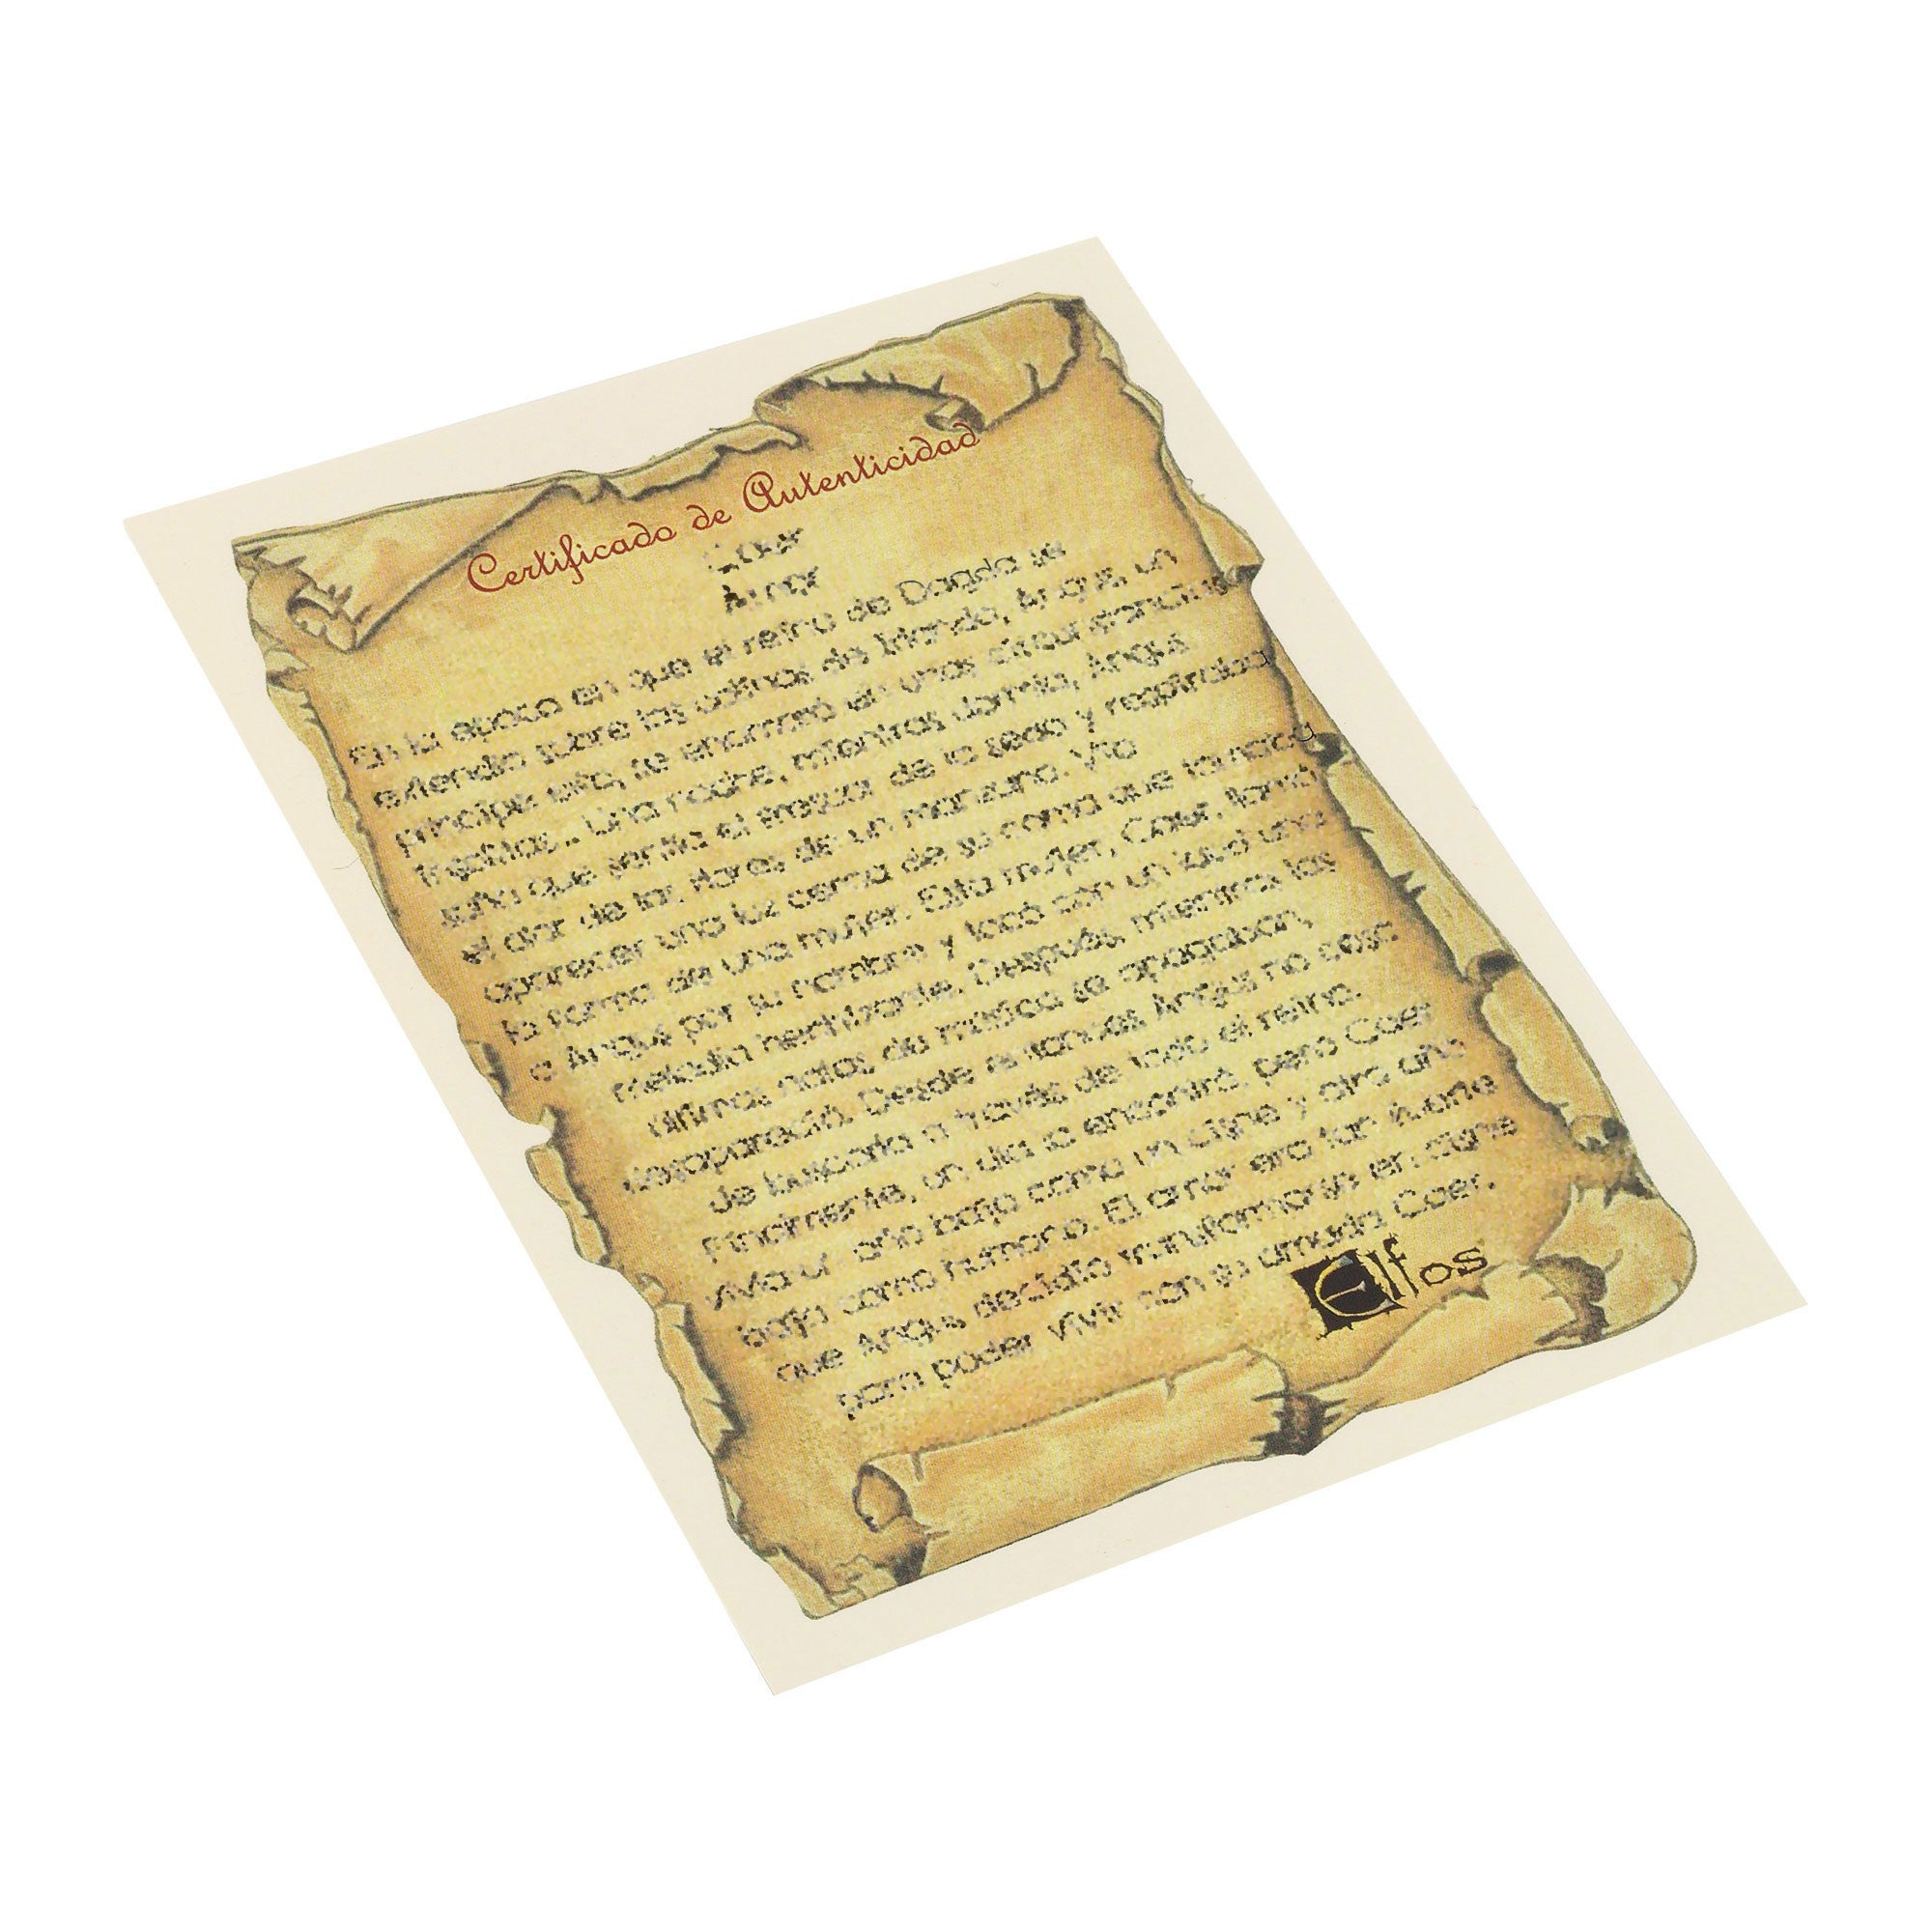 Certificado de Autenticidad
Coer
Amor
En la epoca en que el reino de Dagda se
extendia sobre las colinas de Irlanda, Angus, un
principe elfo, se enamoró en unas circunstancias
insólitas.. Una noche, mientras dormía, Angus
soñó que sentía el frescor de la seda y respiraba
el olor de las flores de un manzano. Vio
aparecer una luz cerca de su cama que tomaba
la forma de una mujer. Esta mujer, Coer, llamó
a Angus por su nombre y tocó con un laúd una
melodía hechizante. Después, mientras las
últimas notas de música se apagaban,
desapareció. Desde entonces Angus no cesó
de buscarla a través de todo el reino.
Finalmente, un día la encontró, pero Coer
vivía un año bajo como un cisne y otro año
bajo como humano. El amor era tan fuerte
que Angus decidió transformarse en cisne
para poder vivir con su amada Coer.
Elfos